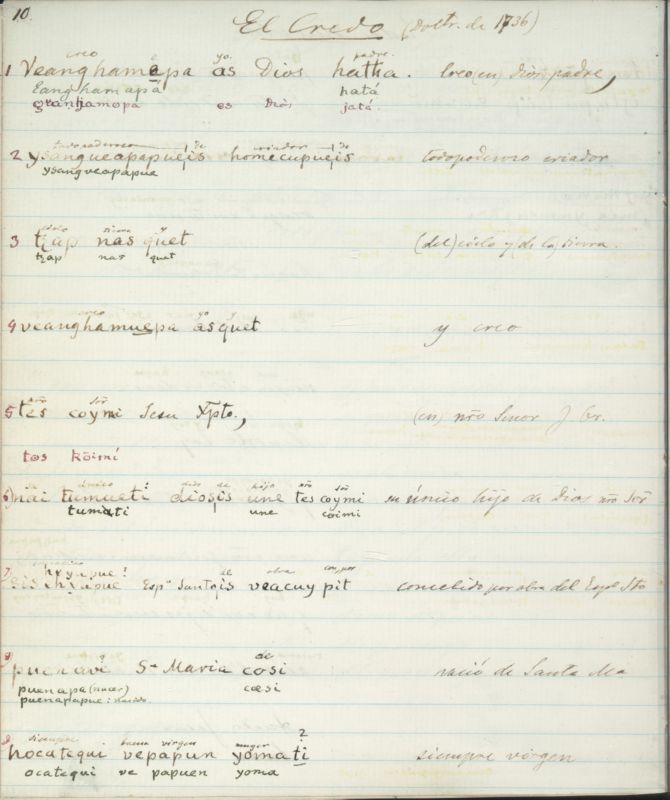 10
El Credo (Doctr. de 1736)
creo yo. padre.
1 Veanghamepa as Dios hatha. Creo (en) Dios padre,
Eanghamapá hatá
es Diós jatá
todopoderoso de criador de
2 ysangueapapueis homecupueis todopoderoso criador
ysangveapapue
cielo tierra y
3 tzap nas quet (del) cielo y (de la) tierra.
tzap nas quet
creo yo y
4 veanghamuepa asquet y creo
nro Sor
5 tes coymi Jesu Xpto, (en) nro Senor J Cr.
tes köimí
su único dios de hijo nro Sor
6) nai tumueti diosis une tes coymi su único hijo de Dios nro Sor
tumati une coimi
de obra con, por
7 Espu Santois veacuy pit concebido por obra del Espt Sto
de
8 puenavé Sta Maria cosi nació de Santa Ma
puenapa (nacer) cœsi
puenapapue: nacido
siempre buena virgen muger ?
9 hocatequi vepapun yomati siempre virgen
ocatequi ve papuen yoma